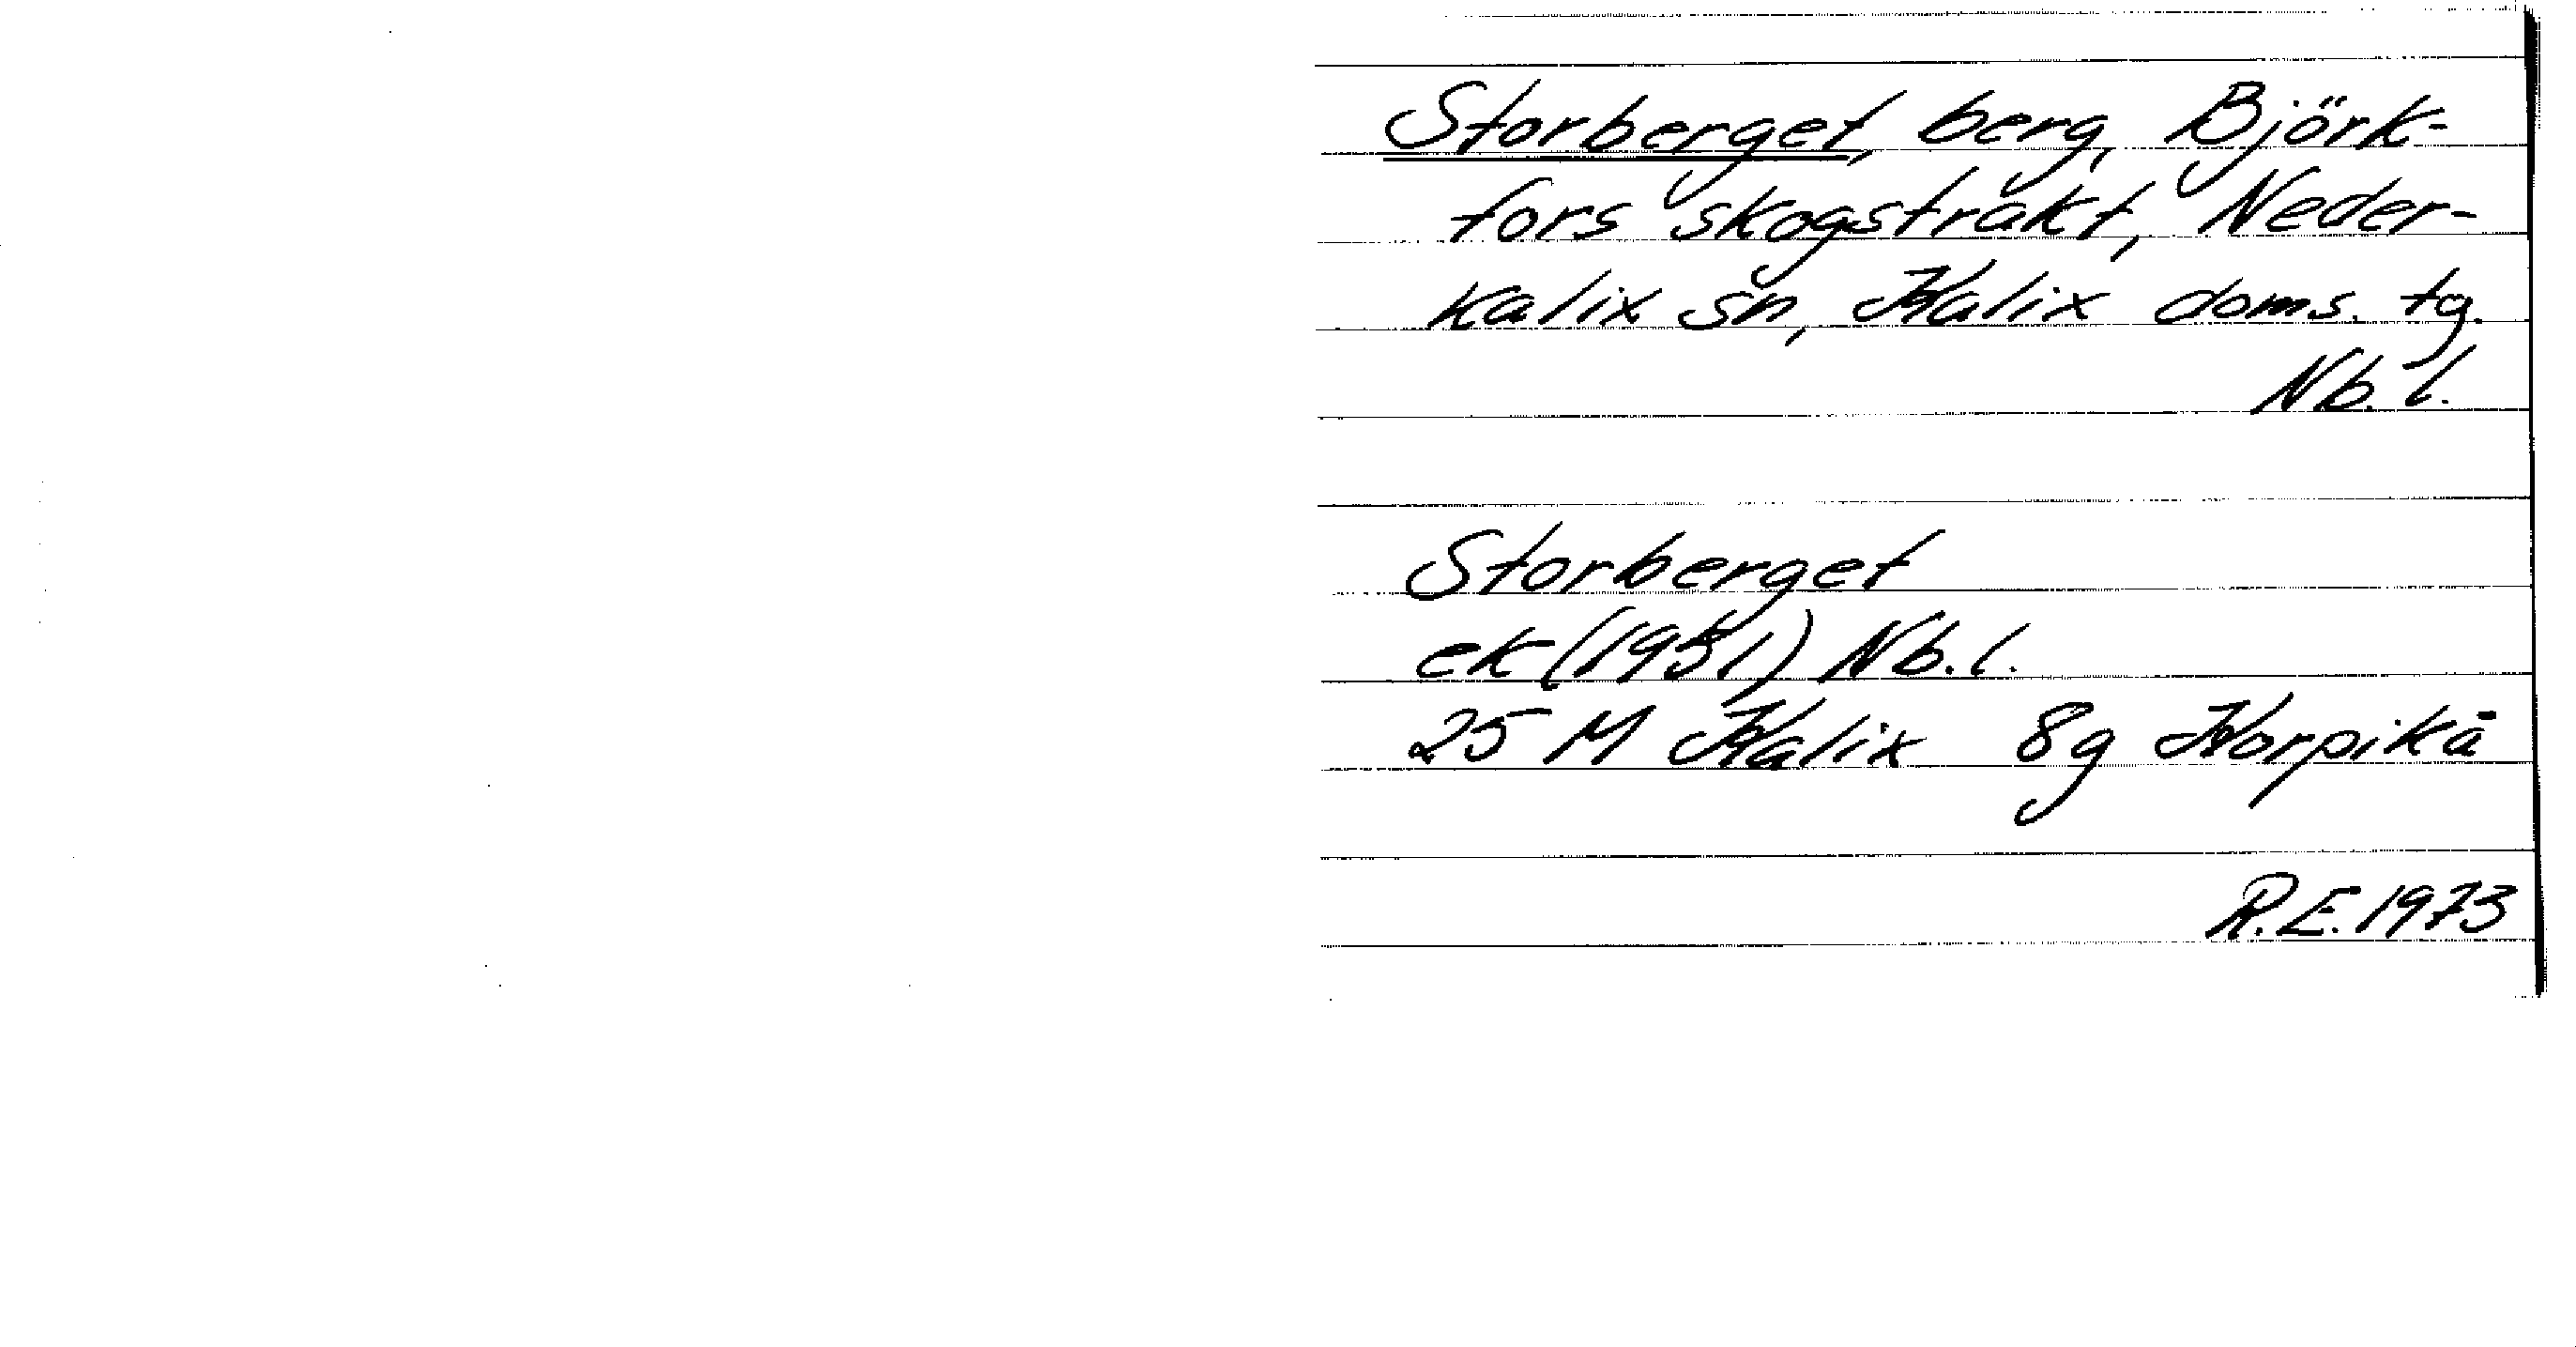 Storberget, berg, Björk-
fors skogstrakt, Neder-
kalix sn, Kalix doms. tg.
Nb. l.
Storberget
ek (1951) Nb. l.
25 M Kalix 8g Korpikå
R.E. 1973